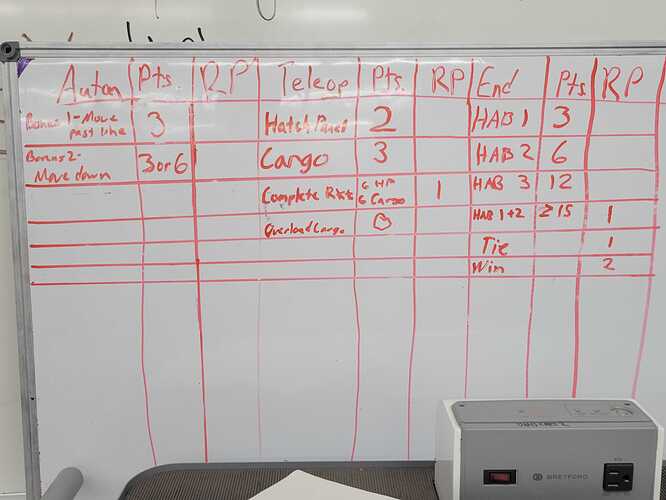 Auton Pts RP Teleop Pts. RP End Pts RP
Bonus 1-Move past line 3 Hatch Panel 2 HAB 1 3
Bonus 2- Move down 3 or 6 Cargo 3 HAB 2 6
Complete 6 HP 6 Cargo 1 HAB 3 12
Overload Cargo 0 HAB 1+2 ≥15 1
Tie 1
Win 2
BRETFORD